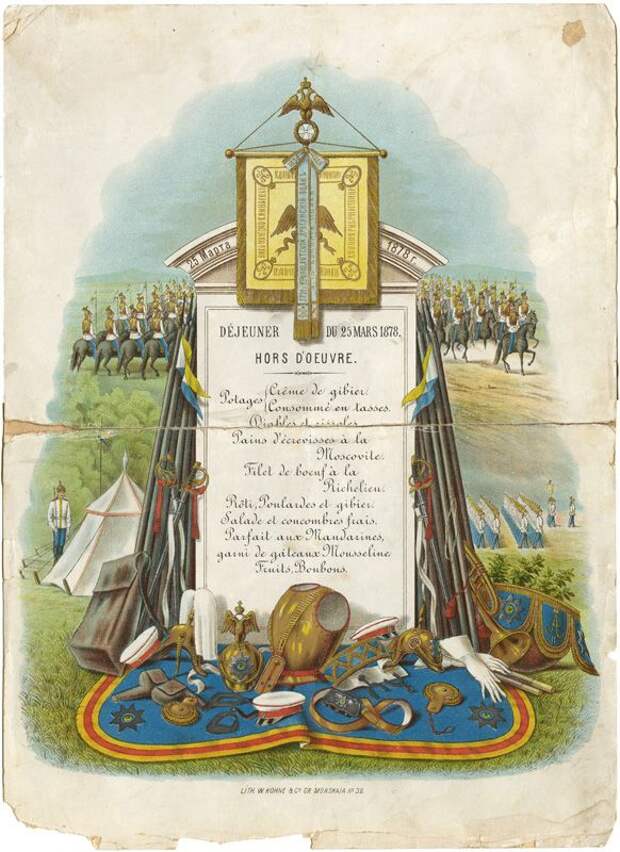 25 Марта
1878 г.
DÉJEUNER DU 25 MARS 1878.
HORS D'OEUVRE.
Potages
Crême de gibier.
Consommé en tasses.
Diables et
Pains d'écrevisses à la
Moscovite.
Filet de boeuf à la
Richelieu.
Rôti, Poulardes et gibier.
Salade et concombres frais.
Parfait aux Mandarines,
garni de gâteaux Mousseline
Fruits, Bonbons.
LITH. W. KÖHNE & Cº GR. MORSKAJA Nº 30